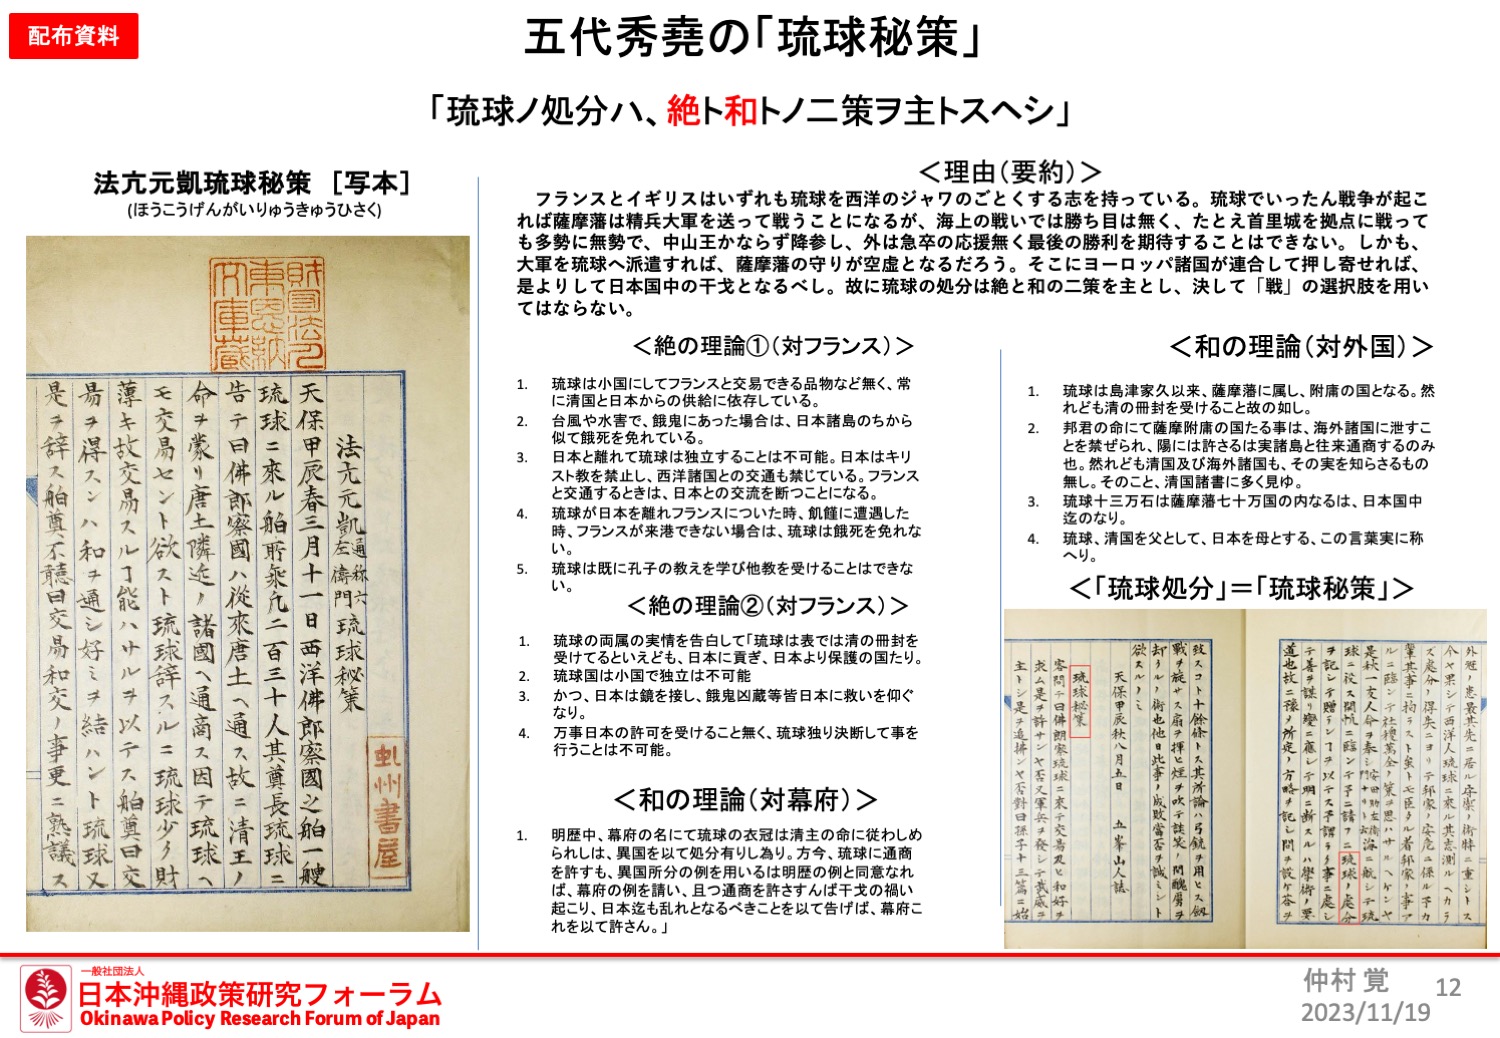 配布資料
五代秀堯の「琉球秘策」
「琉球ノ処分ハ、絶ト和トノ二策ヲ主トスヘシ」
法亢元凱琉球秘策 ［写本］
(ほうこうげんがいりゅうきゅうひさく)
財団法人
東恩納
文庫蔵
法亢元凱通称六左衛門琉球秘策
天保甲辰春三月十一日西洋佛郎察國之船一艘
琉球ニ來ル船所乗凡二百三十人其奠長琉球ニ
告テ曰佛郎察國ハ從來唐土ヘ通ス故ニ清王ノ
命ヲ蒙リ唐土隣近ノ諸國ヘ通商ス因テ琉球ヘ
モ交易セント欲スト琉球辞スルニ琉球少ク財
薄キ故交易スルヿ能ハサルヲ以テス舶奠曰交
易ヲ得スンハ和ヲ通シ好ミヲ結ハント琉球又
是ヲ辞ス舶奠不聽曰交易和交ノ事更ニ熟議ス
虬州書屋
＜理由（要約）＞
フランスとイギリスはいずれも琉球を西洋のジャワのごとくする志を持っている。琉球でいったん戦争が起こ
れば薩摩藩は精兵大軍を送って戦うことになるが、海上の戦いでは勝ち目は無く、たとえ首里城を拠点に戦って
も多勢に無勢で、中山王かならず降参し、外は急卒の応援無く最後の勝利を期待することはできない。しかも、
大軍を琉球へ派遣すれば、薩摩藩の守りが空虚となるだろう。そこにヨーロッパ諸国が連合して押し寄せれば、
是よりして日本国中の干戈となるべし。故に琉球の処分は絶と和の二策を主とし、決して「戦」の選択肢を用い
てはならない。
＜絶の理論①（対フランス）＞
1. 琉球は小国にしてフランスと交易できる品物など無く、常
に清国と日本からの供給に依存している。
2. 台風や水害で、餓鬼にあった場合は、日本諸島のちから
似て餓死を免れている。
3. 日本と離れて琉球は独立することは不可能。日本はキリ
スト教を禁止し、西洋諸国との交通も禁じている。フランス
と交通するときは、日本との交流を断つことになる。
4. 琉球が日本を離れフランスについた時、飢饉に遭遇した
時、フランスが来港できない場合は、琉球は餓死を免れな
い。
5. 琉球は既に孔子の教えを学び他教を受けることはできな
い。
＜絶の理論②（対フランス）＞
1. 琉球の両属の実情を告白して「琉球は表では清の冊封を
受けてるといえども、日本に貢ぎ、日本より保護の国たり。
2. 琉球国は小国で独立は不可能
3. かつ、日本は鏡を接し、餓鬼凶蔵等皆日本に救いを仰ぐ
なり。
4. 万事日本の許可を受けること無く、琉球独り決断して事を
行うことは不可能。
＜和の理論（対幕府）＞
1. 明歴中、幕府の名にて琉球の衣冠は清主の命に従わしめ
られしは、異国を以て処分有りし為り。方今、琉球に通商
を許すも、異国所分の例を用いるは明歴の例と同意なれ
ば、幕府の例を請い、且つ通商を許さすんば干戈の禍い
起こり、日本迄も乱れとなるべきことを以て告げば、幕府こ
れを以て許さん。」
＜和の理論（対外国）＞
1. 琉球は島津家久以来、薩摩藩に属し、附庸の国となる。然
れども清の冊封を受けること故の如し。
2. 邦君の命にて薩摩附庸の国たる事は、海外諸国に泄すこ
とを禁ぜられ、陽には許さるは実諸島と往来通商するのみ
也。然れども清国及び海外諸国も、その実を知らさるもの
無し。そのこと、清国諸書に多く見ゆ。
3. 琉球十三万石は薩摩藩七十万国の内なるは、日本国中
迄のなり。
4. 琉球、清国を父として、日本を母とする、この言葉実に称
へり。
＜「琉球処分」＝「琉球秘策」＞
欲スルノミ
天保甲辰秋八月五日 五峯山人誌
琉球秘策
一般社団法人
日本沖縄政策研究フォーラム
Okinawa Policy Research Forum of Japan
仲村 覚
2023/11/19
12